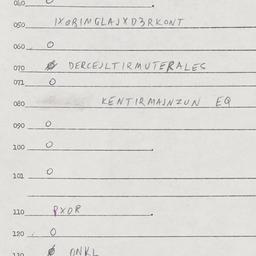 050 IXORIMGLAJXD3RKONT
060 O
070 Ø DERCEJLTIRMUTERALES
071 O
080 KENTIRMAJNZUN EQ
090 O
100 O
101 O
110 PXOR
120 O
Ø ONKL